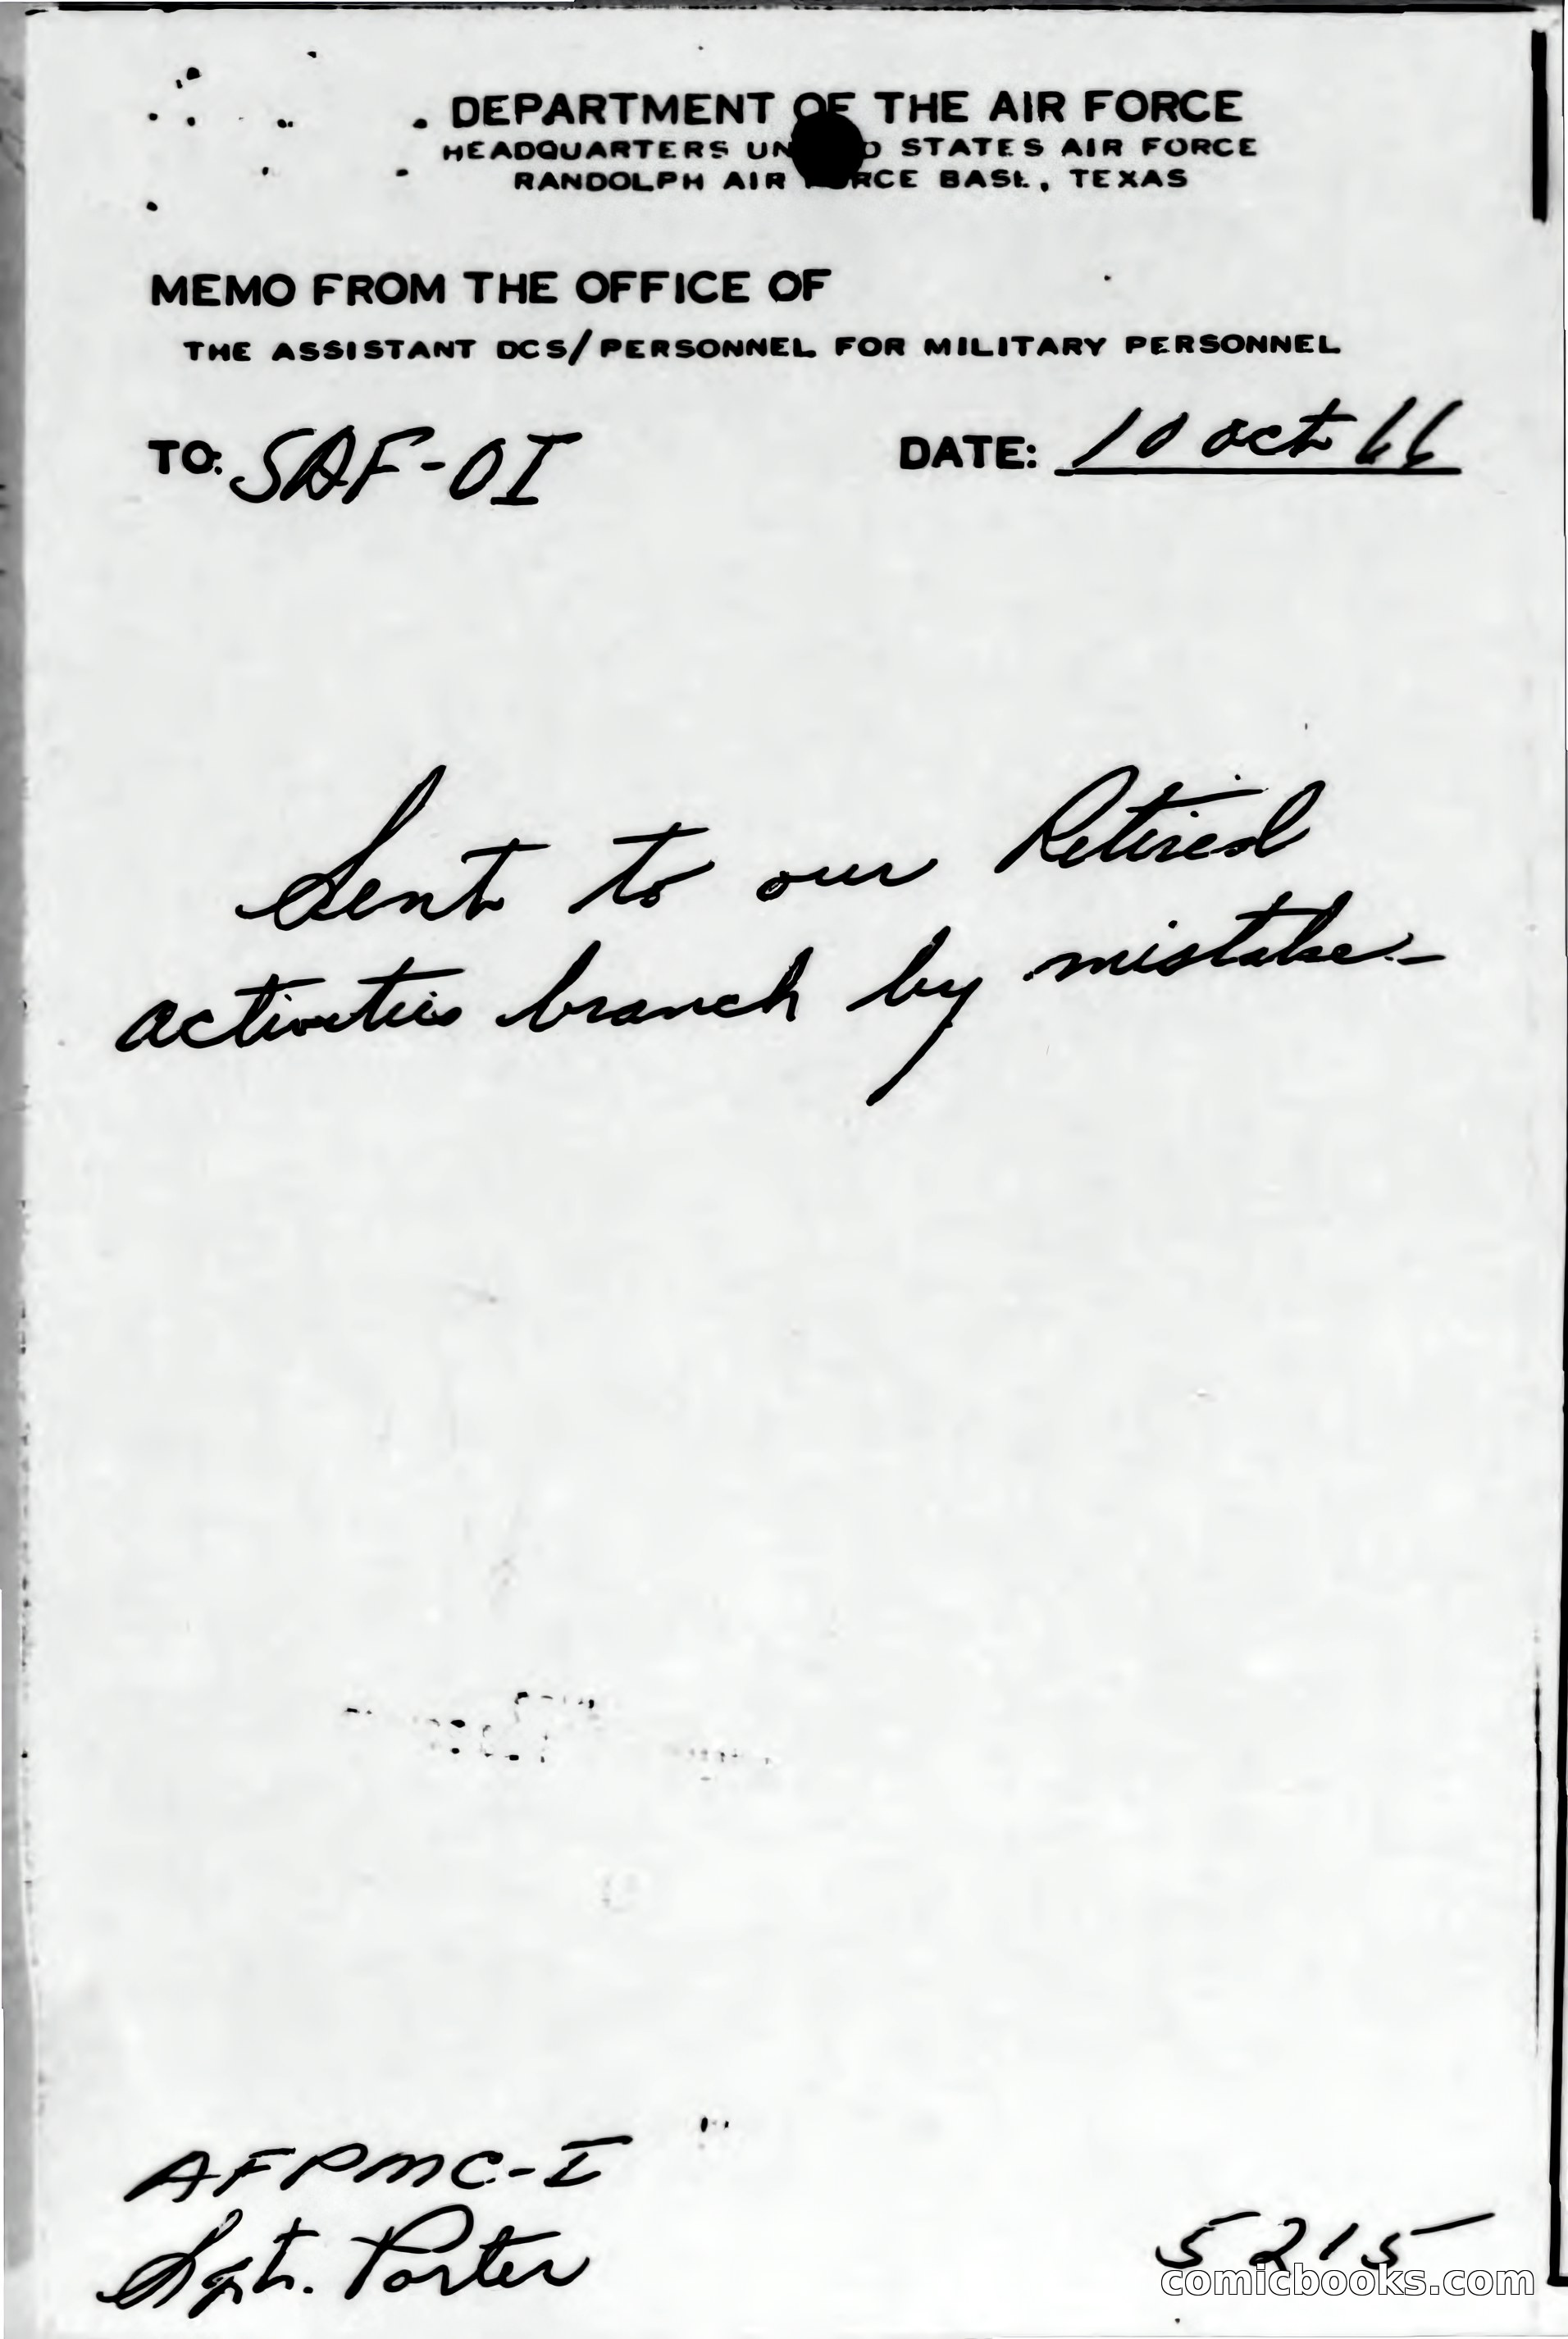 DEPARTMENT OF THE AIR FORCE
HEADQUARTERS UN D STATES AIR FORCE
RANDOLPH AIR FORCE BASE, TEXAS
MEMO FROM THE OFFICE OF
THE ASSISTANT DCS/PERSONNEL FOR MILITARY PERSONNEL
TO: SAF-OI DATE: 10 Oct 66
Sent to our Retired
activities branch by mistake-
AFPMC-I
Sgt. Porter 5215
comicbooks.com